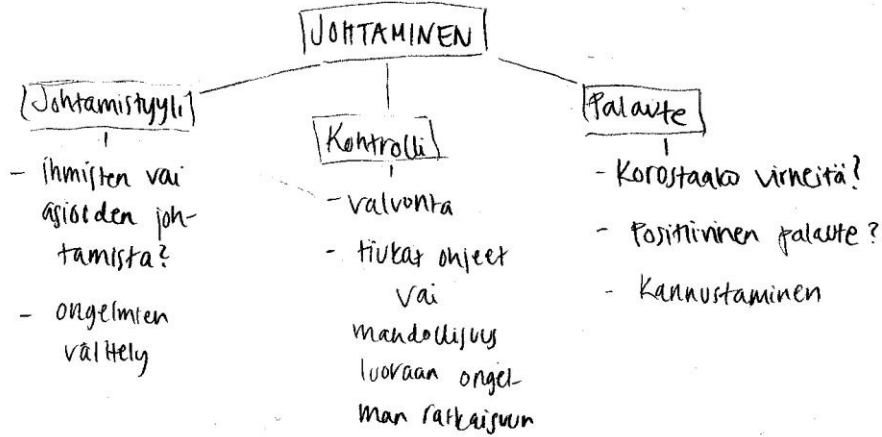 JOHTAMINEN
Johtamistyyli
- ihmisten vai
asioiden joh-
tamista?
- ongelmien
välttely
Kontrolli
- valvonta
- tiukat ohjeet
vai
mahdollisuus
luovaan ongel-
man ratkaisuun
Palaute
- Korostaako virheitä?
- Positiivinen palaute?
- Kannustaminen